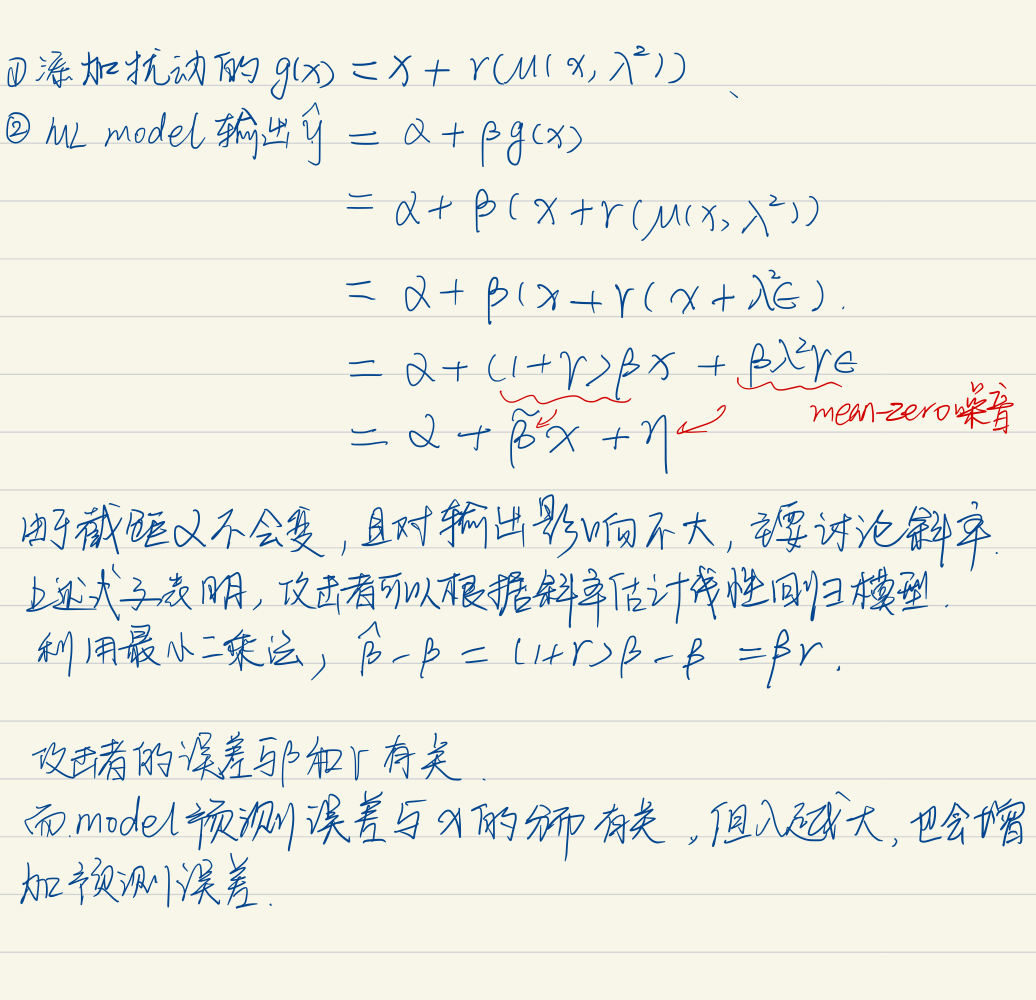 ① 添加扰动的 g(x) = x + r(μ(x, λ²))
② ML model 输出 ŷ = α + βg(x)
= α + β(x + r(μ(x, λ²))
= α + β(x + r(x + λ²ϵ).
= α + (1+r)βx + βλ²rϵ
mean-zero噪音
= α + β̃x + η
由于截距α不会变，且对输出影响不大，主要讨论斜率.
上述式子表明，攻击者可以根据斜率估计线性回归模型.
利用最小二乘法，β̂ - β = (1+r)β - β = βr.
攻击者的误差与β和r有关.
而model预测误差与x的分布有关，但λ越大，也会增
加预测误差.